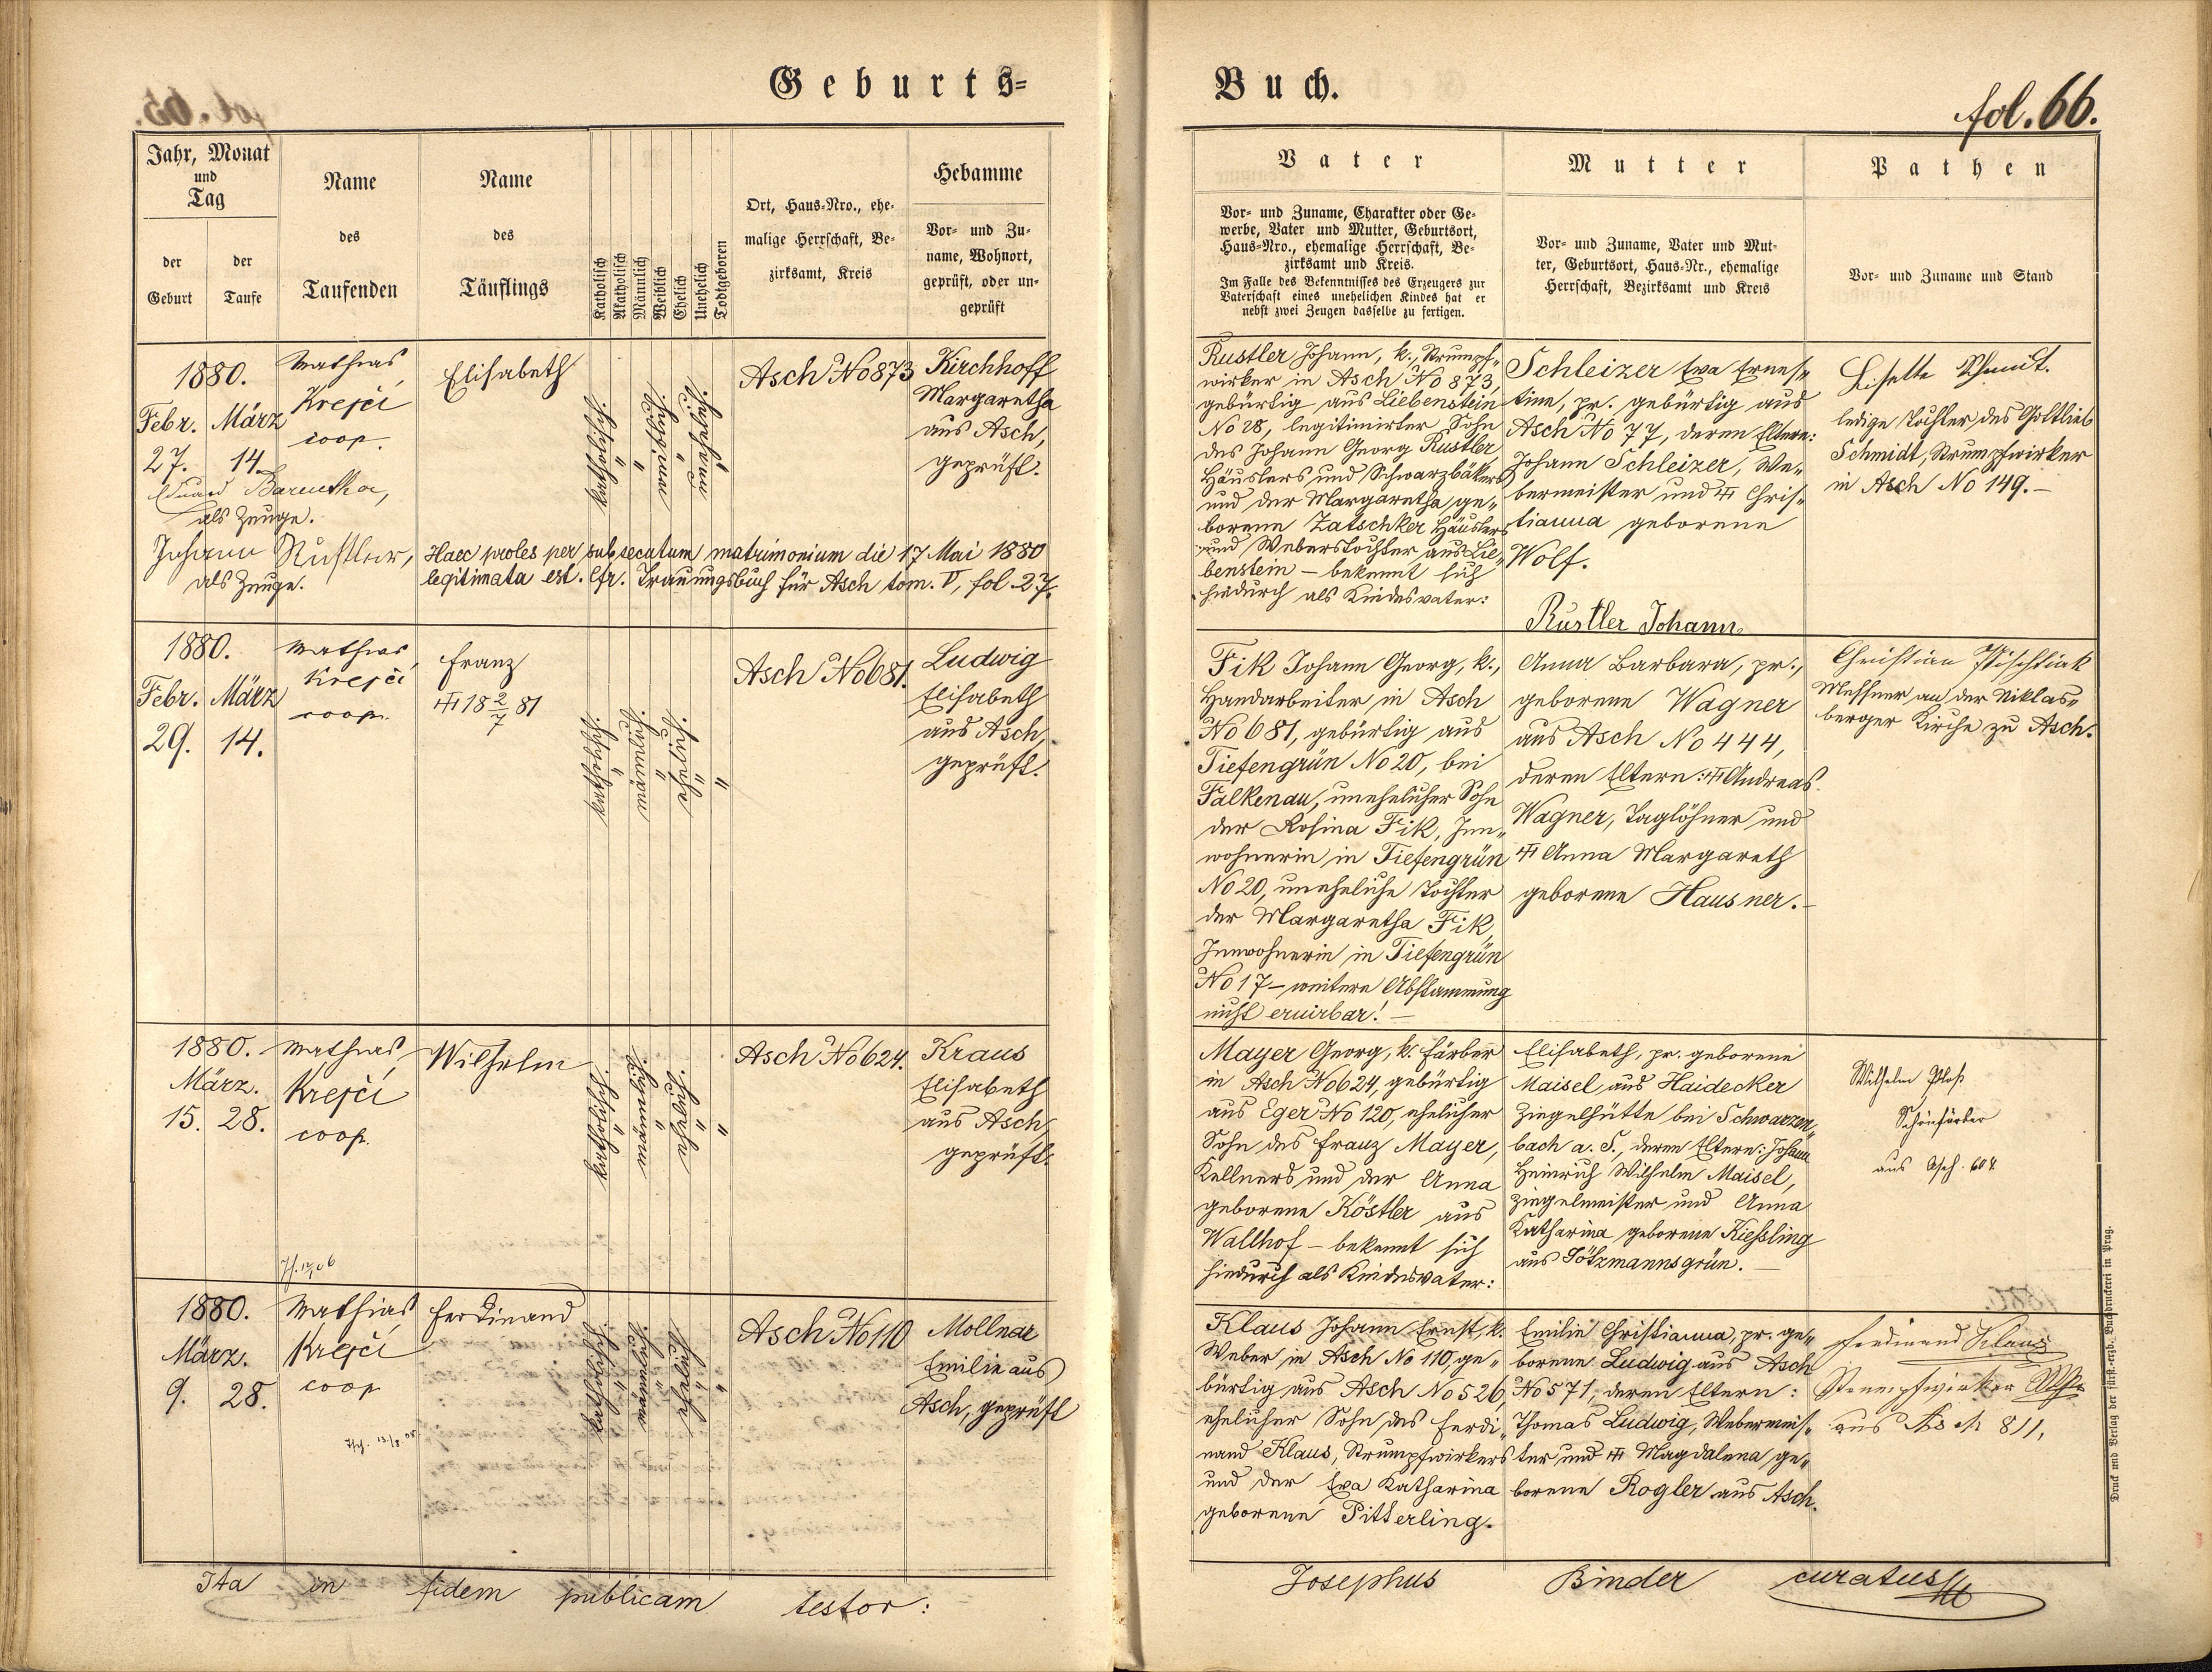 Geburts=
Buch.
fol. 66.
Jahr, Monat
und
Tag
der
Geburt
der
Taufe
Name
des
Taufenden
Name
des
Täuflings
Katholisch
Akatholisch
Männlich
Weiblich
Ehelich
Unehelich
Todtgeboren
Ort, Haus=Nro., ehe=
malige Herrschaft, Be=
zirksamt, Kreis
Hebamme
Vor= und Zu=
name, Wohnort,
geprüft, oder un=
geprüft
Vater
Vor= und Zuname, Charakter oder Ge=
werbe, Vater und Mutter, Geburtsort,
Haus=Nro., ehemalige Herrschaft, Be=
zirksamt und Kreis.
Im Falle des Bekenntnisses des Erzeugers zur
Vaterschaft eines unehelichen Kindes hat er
nebst zwei Zeugen dasselbe zu fertigen.
Mutter
Vor= und Zuname, Vater und Mut=
ter, Geburtsort, Haus=Nr., ehemalige
Herrschaft, Bezirksamt und Kreis
Pathen
Vor= und Zuname und Stand
1880.
Febr. März
27. 14.
Eduard
als Zeuge.
Johann Rustler,
als Zeuge.
Mathias
Krejčí
coop.
Elisabeth
katholisch
"
weiblich
"
unehelich
Asch No 873
Kirchhoff
Margaretha
aus Asch,
geprüft.
Haec proles per subsecutum matrimonium die 17 Mai 1880
legitimata est. Cfr. Trauungsbuch für Asch tom. V, fol. 27.
Rustler Johann, k., Strumpf=
wirker in Asch No 873,
gebürtig aus Liebenstein
No 28, legitimirter Sohn
des Johann Georg Rustler
Häuslers und Schwarzbäkers
und der Margaretha ge=
borene Zatschker Häuslers
und Weberstochter aus Lie=
benstein – bekennt sich
hiedurch als Kindesvater:
Schleizer Eva Ernes=
tine, pr. gebürtig aus
Asch No 77, deren Eltern:
Johann Schleizer, We=
bermeister und ✝ Chris=
tianna geborene
Wolf.
Rustler Johann.
Lisette Schmidt.
ledige Tochter des Gottlieb
Schmidt, Strumpfwirker
in Asch No 149.–
1880.
Febr. März
29. 14.
Mathias
Krejčí
coop.
Franz
✝ 18 2/7 81
katholisch
"
männlich
"
ehelich
"
"
Asch No 681.
Ludwig
Elisabeth
aus Asch,
geprüft.
Fik Johann Georg, k.,
Handarbeiter in Asch
No 681, gebürtig aus
Tiefengrün No 20, bei
Falkenau, unehelicher Sohn
der Rosina Fik, Inn=
wohnerin in Tiefengrün
No 20, uneheliche Tochter
der Margaretha Fik,
Innwohnerin in Tiefengrün
No 17 – weitere Abstammung
nicht eruirbar! –
Anna Barbara, pr.,
geborene Wagner
aus Asch No 444,
deren Eltern: ✝ Andreas
Wagner, Taglöhner und
✝ Anna Margareth
geborene Hausner.–
Christian
Messner an der Niklas=
berger Kirche zu Asch.
1880.
März.
15. 28.
Mathias
Krejčí
coop.
Wilhelm
katholisch
"
männlich
"
ehelich
"
"
Asch No 624.
Kraus
Elisabeth
aus Asch,
geprüft.
Mayer Georg, k. Färber
in Asch No 624, gebürtig
aus Eger No 120, ehelicher
Sohn des Franz Mayer,
Kellners und der Anna
geborene Köstler aus
Wallhof – bekennt sich
hiedurch als Kindesvater:
Elisabeth, pr. geborene
Maisel aus Haidecker
Ziegelhütte bei Schwarzen=
bach a. S., deren Eltern: Johann
Heinrich Wilhelm Maisel,
Ziegelmeister und Anna
Katharina geborene Kiessling
aus Götzmannsgrün. –
Wilhelm Ploß
Schönfärber
aus Asch 604
1880.
März.
9. 28.
Mathias
Krejčí
coop
Ferdinand
katholisch
"
männlich
"
ehelich
"
"
Asch No 110
Mollnar
Emilie aus
Asch, geprüft
Klaus Johann Ernst, k.
Weber in Asch No 110, ge=
bürtig aus Asch No 526,
ehelicher Sohn des Ferdi=
nand Klaus, Strumpfwirkers
und der Eva Katharina
geborene Pitterling.
Emilie Christianna, pr. ge=
borene Ludwig aus Asch
No 571, deren Eltern:
Thomas Ludwig, Webermeis=
ter und ✝ Magdalena ge=
borene Rogler aus Asch.
Ferdinand Klaus
Strumpfwirker
aus Asch 811,
Ita in fidem publicam testor:
Josephus Binder curatus
Druck und Verlag der fürst.=erzb. Buchdruckerei in Prag.